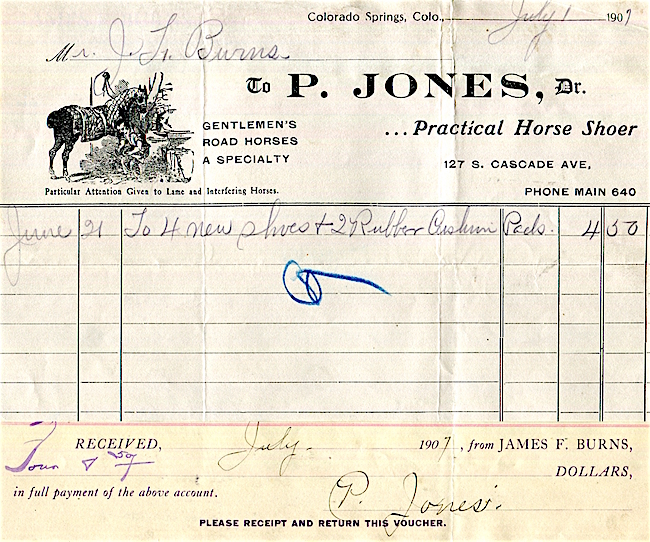 Colorado Springs, Colo., July 1 1907
Mr. J. F. Burns
To P. JONES, Dr.
GENTLEMEN'S
ROAD HORSES
A SPECIALTY
...Practical Horse Shoer
127 S. CASCADE AVE,
Particular Attention Given to Lame and Interfering Horses.
PHONE MAIN 640
June 21 To 4 new shoes + 2 Rubber Cushion Pads. 4 50
RECEIVED, July 1907, from JAMES F. BURNS,
Four & 50/ DOLLARS,
in full payment of the above account.
P. Jones.
PLEASE RECEIPT AND RETURN THIS VOUCHER.